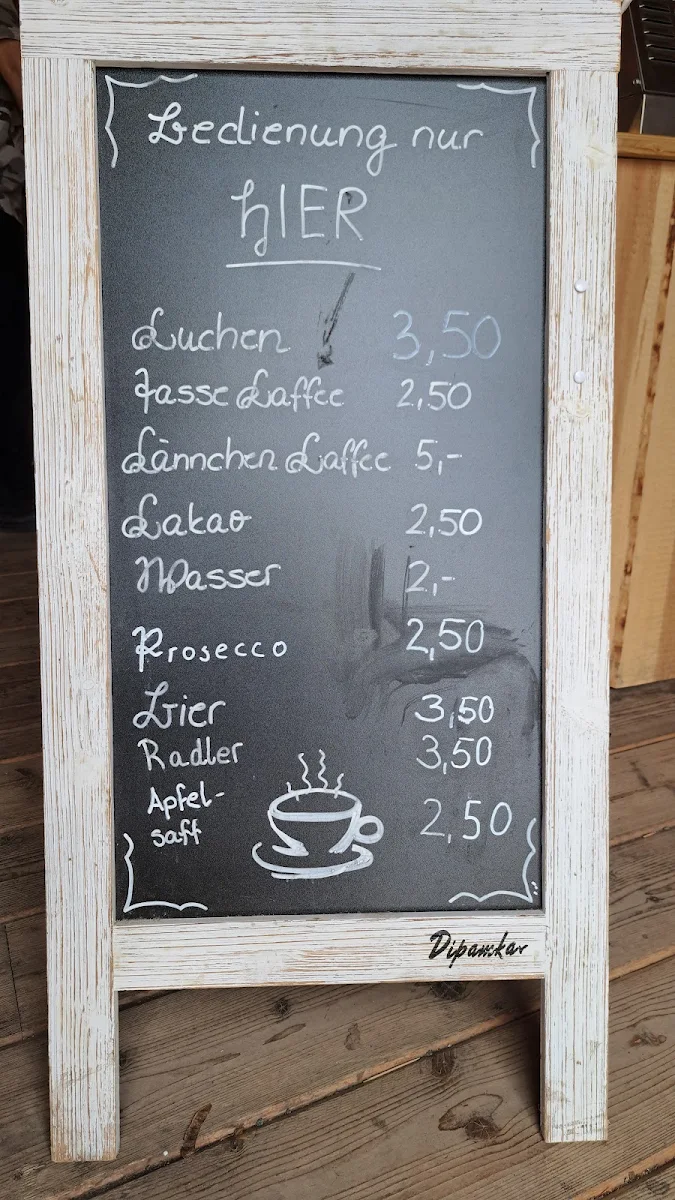 Bedienung nur
HIER
Kuchen 3,50
Tasse Kaffee 2,50
Kännchen Kaffee 5,-
Kakao 2,50
Wasser 2,-
Prosecco 2,50
Bier 3,50
Radler 3,50
Apfel-
saft 2,50
Dipamkar